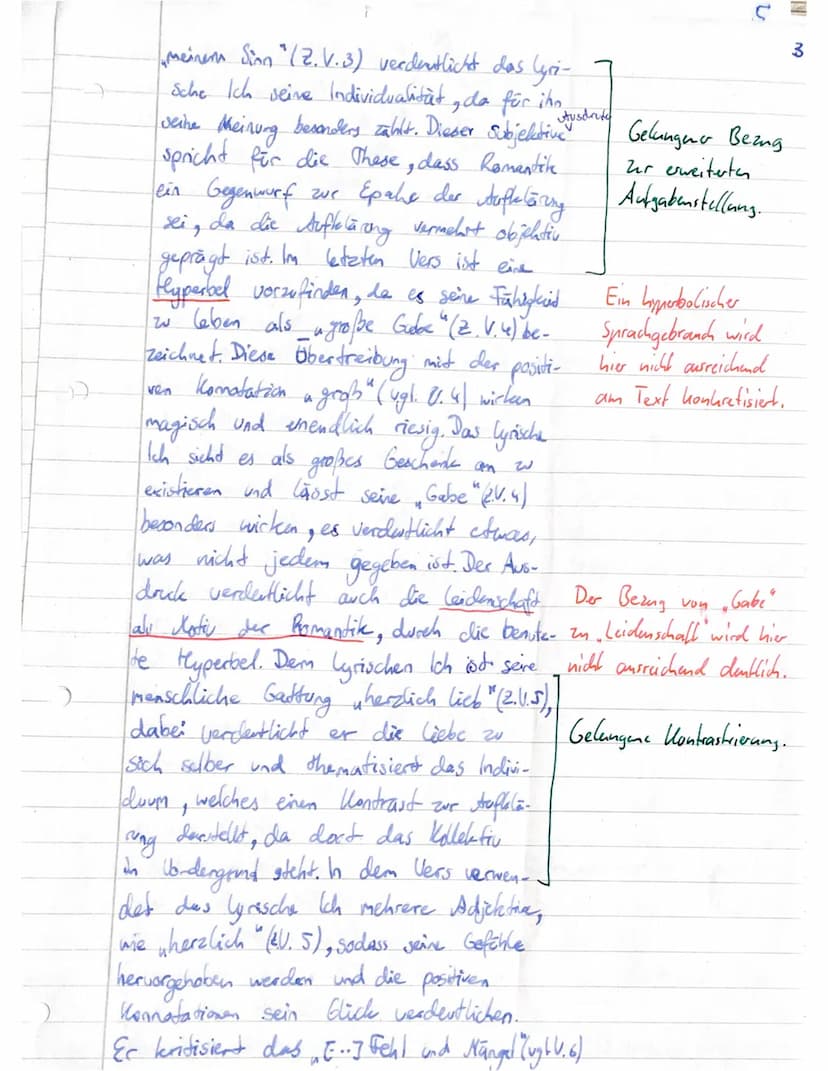 5
3
„meinem Sinn" (Z.V.3) verdeutlicht das lyri-
sche Ich seine Individualität, da für ihn
seine Meinung besonders zählt. Dieser subjektive Ausdruck
spricht für die These, dass Romantik
ein Gegenwurf zur Epohe der Aufklärung
sei, da die Aufklärung vermehrt objektiv
geprägt ist. Im letzten Vers ist eine
Hyperbel vorzufinden, da es seine Fähigkeit
zu leben als „große Gabe" (Z.V.4) be-
zeichnet. Diese Übertreibung mit der positi-
ven Konnotation „groß" (vgl. V.4) wirken
magisch und unendlich riesig. Das lyrische
Ich sieht es als großes Geschenk an zu
existieren und lässt seine „Gabe" (Z.V.4)
besonders wirken, es verdeutlicht etwas,
was nicht jedem gegeben ist. Der Aus-
druck verdeutlicht auch die Leidenschaft
als Motiv der Romantik, durch die benutz-
te Hyperbel. Dem lyrischen Ich ist seine
menschliche Gattung „herzlich lieb" (Z.V.5),
dabei verdeutlicht er die Liebe zu
sich selber und thematisiert das Indivi-
duum, welches einen Kontrast zur Aufklä-
rung darstellt, da dort das Kollektiv
im Vordergrund steht. In dem Vers verwen-
det das lyrische Ich mehrere Adjektive,
wie „herzlich" (Z.V.5), sodass seine Gefühle
hervorgehoben werden und die positiven
Konnotationen sein Glück verdeutlichen.
Er kritisiert das „[..] Fehl und Mängel" (vgl. V.6)
Gelungener Bezug
zur erweiterten
Aufgabenstellung.
Ein hyperbolischer
Sprachgebrauch wird
hier nicht ausreichend
am Text konkretisiert.
Der Bezug von „Gabe"
zu „Leidenschaft" wird hier
nicht ausreichend deutlich.
Gelungene Kontrastierung.